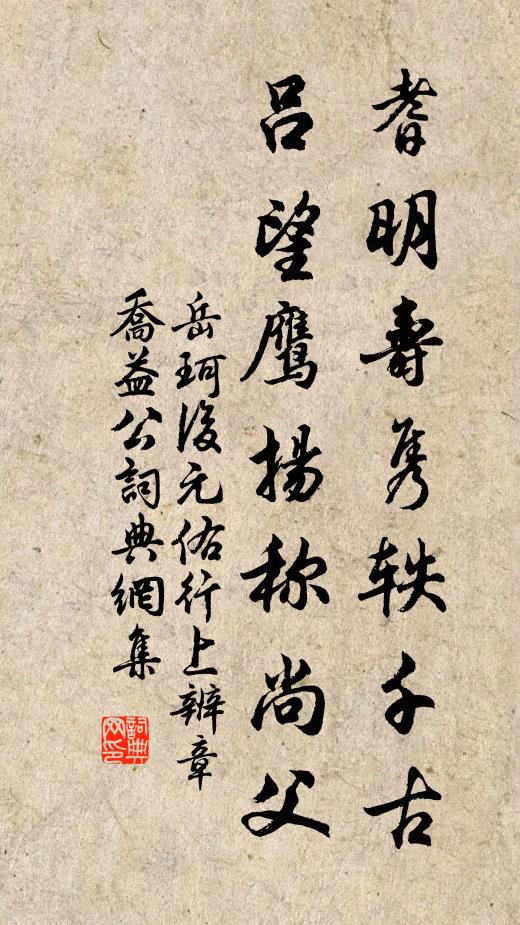 耆明壽隽軼千古
吕望鹰揚称尚父
岳珂後元佑行上辨章
喬益公詞典網集
詞典
网印